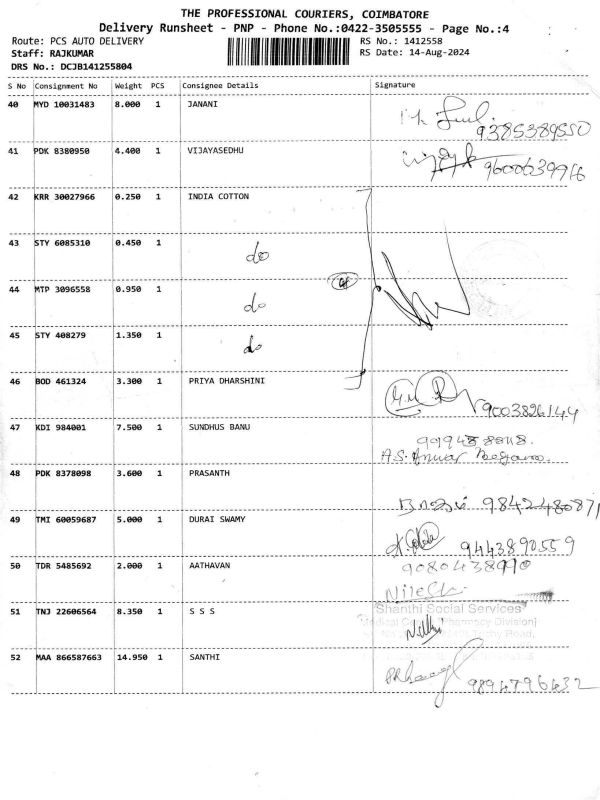 THE PROFESSIONAL COURIERS, COIMBATORE
Delivery Runsheet - PNP - Phone No.:0422-3505555 - Page No.:4
Route: PCS AUTO DELIVERY RS No.: 1412558
Staff: RAJKUMAR RS Date: 14-Aug-2024
DRS No.: DCJB141255804
S No Consignment No Weight PCS Consignee Details Signature
40 MYD 10031483 8.000 1 JANANI
9385389550
41 PDK 8380950 4.400 1 VIJAYASEDHU
9600639916
42 KRR 30027966 0.250 1 INDIA COTTON
43 STY 6085310 0.450 1 do
44 MTP 3096558 0.950 1 do
45 STY 408279 1.350 1 do
46 BOD 461324 3.300 1 PRIYA DHARSHINI
9003826144
47 KDI 984001 7.500 1 SUNDHUS BANU
A.S. Anwar Begam.
48 PDK 8378098 3.600 1 PRASANTH
9842480871
49 TMI 60059687 5.000 1 DURAI SWAMY
9443890559
50 TDR 5485692 2.000 1 AATHAVAN
Nilesh
51 TNJ 22606564 8.350 1 S S S
Shanthi Social Services
52 MAA 866587663 14.950 1 SANTHI
9894796432